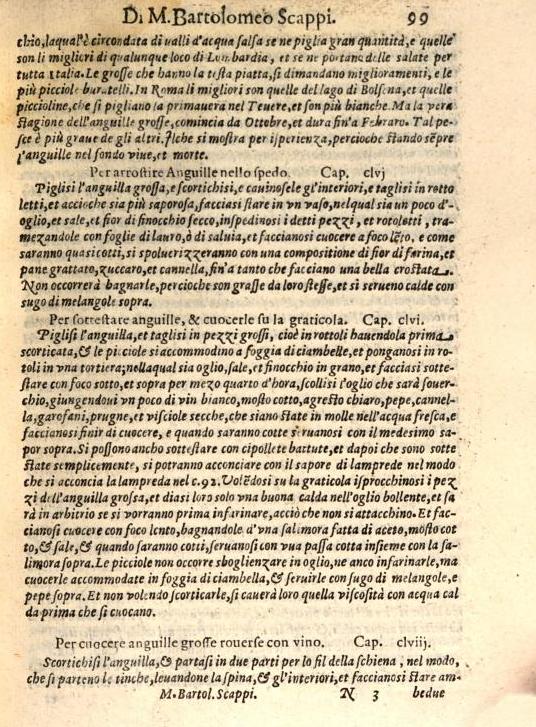 Di M. Bartolomeo Scappi. 99
chio, laqual'è circondata di ualli d'acqua salsa se ne piglia gran quantità, e quelle
son li migliori di qualunque loco di Lombardia, et se ne portano delle salate per
tutta italia. Le grosse che hanno la testa piatta, si dimandano miglioramenti, e le
più picciole buratelli. In Roma li migliori son quelle del lago di Bolsena, et quelle
piccioline, che si pigliano la primauera nel Teuere, et son più bianche. Ma la vera
stagione dell'anguille grosse, comincia da Ottobre, et dura fin'a Febraro. Tal pe-
sce è più graue de gli altri. Ilche si mostra per isperienza, percioche stando sẽpre
l'anguille nel fondo viue, et morte.
Per arrostire Anguille nello spedo. Cap. clvj
Piglisi l'anguilla grossa, e scortichisi, e cauinosele gl'interiori, e taglisi in rotto
letti, et accioche sia più saporosa, facciasi stare in vn vaso, nel qual sia un poco d'-
oglio, et sale, et fior di finocchio secco, inspedinosi i detti pezzi, et rotoletti, tra-
mezandole con foglie di lauro, ò di saluia, et faccianosi cuocere a foco lẽto, e come
saranno quasi cotti, si spoluerizzeranno con una compositione di fior di farina, et
pane grattato, zuccaro, et cannella, fin'a tanto che facciano una bella crostata.
Non occorrerà bagnarle, percioche son grasse da loro stesse, et si serueno calde con
sugo di melangole sopra.
Per sottestare anguille, & cuocerle su la graticola. Cap. clvi.
Piglisi l'anguilla, et taglisi in pezzi grossi, cioè in rottoli hauendola prima
scorticata, & le picciole si accommodino a foggia di ciambelle, et ponganosi in ro-
toli in vna tortiera; nellaqual sia oglio, sale, et finocchio in grano, et facciasi sotte-
stare con foco sotto, et sopra per mezo quarto d'hora, scollisi l'oglio che sarà souer-
chio, giungendoui vn poco di vin bianco, mosto cotto, agresto chiaro, pepe, cannel-
la, garofani, prugne, et visciole secche, che siano state in molle nell'acqua fresca, e
faccianosi finir di cuocere, e quando saranno cotte seruanosi con il medesimo sa-
por sopra. Si possono anche sottestare con cipollete battute, et dapoi che sono sotte
state semplicemente, si potranno acconciare con il sapore di lamprede nel modo
che si acconcia la lampreda nel c.92. Volẽdosi su la graticola isprocchinosi i pez
zi dell'anguilla grossa, et diasi loro solo vna buona calda nell'oglio bollente, et sa
rà in arbitrio se si vorranno prima infarinare, acciò che non si attacchino. Et fac-
cianosi cuocere con foco lento, bagnandole d'vna salimora fatta di aceto, mosto cot
to, & sale, & quando saranno cotti, seruanosi con vua passa cotta insieme con la sa-
limora sopra. Le picciole non occorre sboglienzare in oglio, ne anco infarinarle, ma
cuocerle accommodate in foggia di ciambella, & seruirle con sugo di melangole, e
pepe sopra. Et non volendo scorticarle, si cauerà loro quella viscosità con acqua cal
da prima che si cuocano.
Per cuocere anguille grosse rouerse con vino. Cap. clviij.
Scortichisi l'anguilla, & partasi in due parti per lo fil della schiena, nel modo,
che si parteno le tinche, leuandone la spina, & gl'interiori, et faccianosi stare am-
M. Bartol. Scappi. N 3 bedue